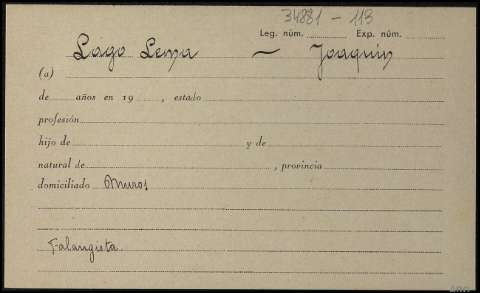 34881 - 113
Leg. núm. Exp. núm.
Lago Lema — Joaquín
(a)
de años en 19 , estado
profesión
hijo de y de
natural de , provincia
domiciliado Muros
Falangista.